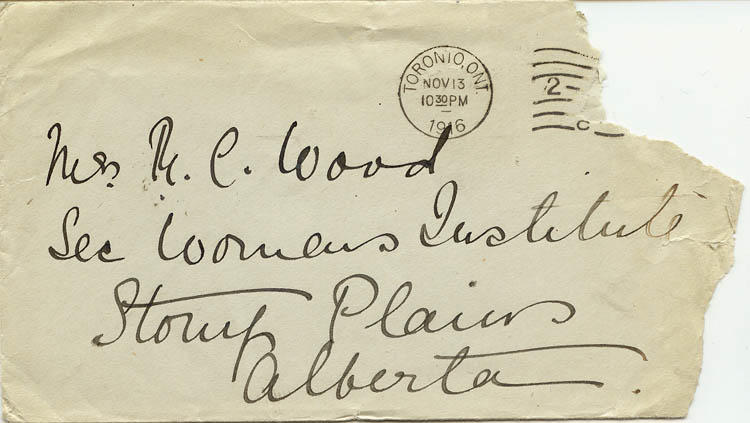 TORONTO, ONT.
NOV 13
10 30 PM
1916
2
C
Mrs. R. C. Wood
Sec Womens Institute
Stony Plains
Alberta.